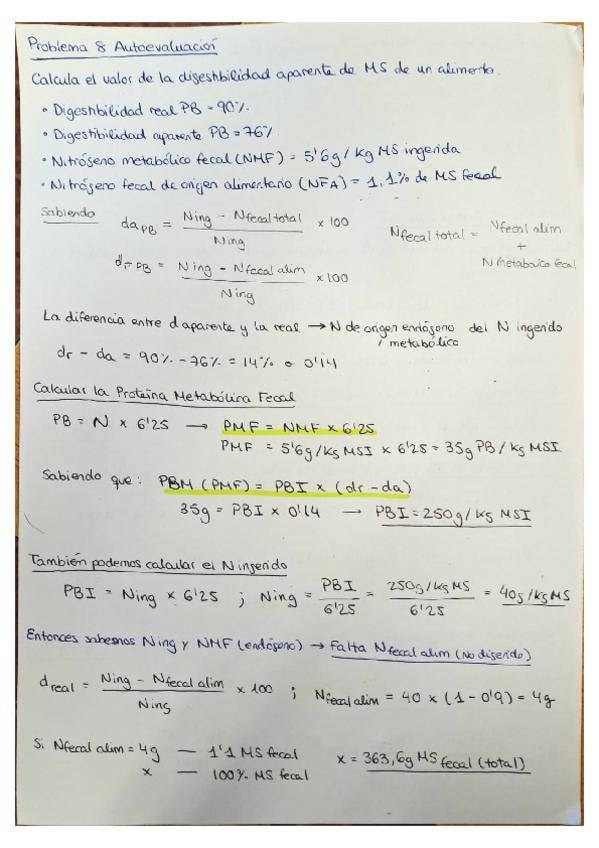 Problema 8 Autoevaluación
Calcula el valor de la digestibilidad aparente de MS de un alimento.
• Digestibilidad real PB = 90%.
• Digestibilidad aparente PB = 76%
• Nitrógeno metabólico fecal (NMF) = 5'6g/kg MS ingerida
• Nitrógeno fecal de origen alimentario (NFA) = 1,1% de MS fecal
Sabiendo
da PB = Ning - Nfecal total / Ning x 100
Nfecal total = Nfecal alim + N metabolico fecal
dr PB = Ning - Nfecal alim / Ning x 100
La diferencia entre d aparente y la real → N de origen endógeno del N ingerido
/ metabólico
dr - da = 90% - 76% = 14% o 0'14
Calcular la Proteína Metabólica Fecal
PB = N x 6'25 → PMF = NMF x 6'25
PMF = 5'6g/kg MSI x 6'25 = 35g PB/kg MSI
Sabiendo que: PBM (PMF) = PBI x (dr - da)
35g = PBI x 0'14 → PBI = 250g/kg MSI
También podemos calcular el N ingerido
PBI = Ning x 6'25 ; Ning = PBI / 6'25 = 250g/kg MS / 6'25 = 40g/kg MS
Entonces sabemos Ning y NMF (endógeno) → Falta Nfecal alim (No digerido)
d real = Ning - Nfecal alim / Ning x 100 ; Nfecal alim = 40 x (1 - 0'9) = 4g
Si Nfecal alim = 4g — 1'1 MS fecal
x — 100% MS fecal
x = 363,6g MS fecal (total)